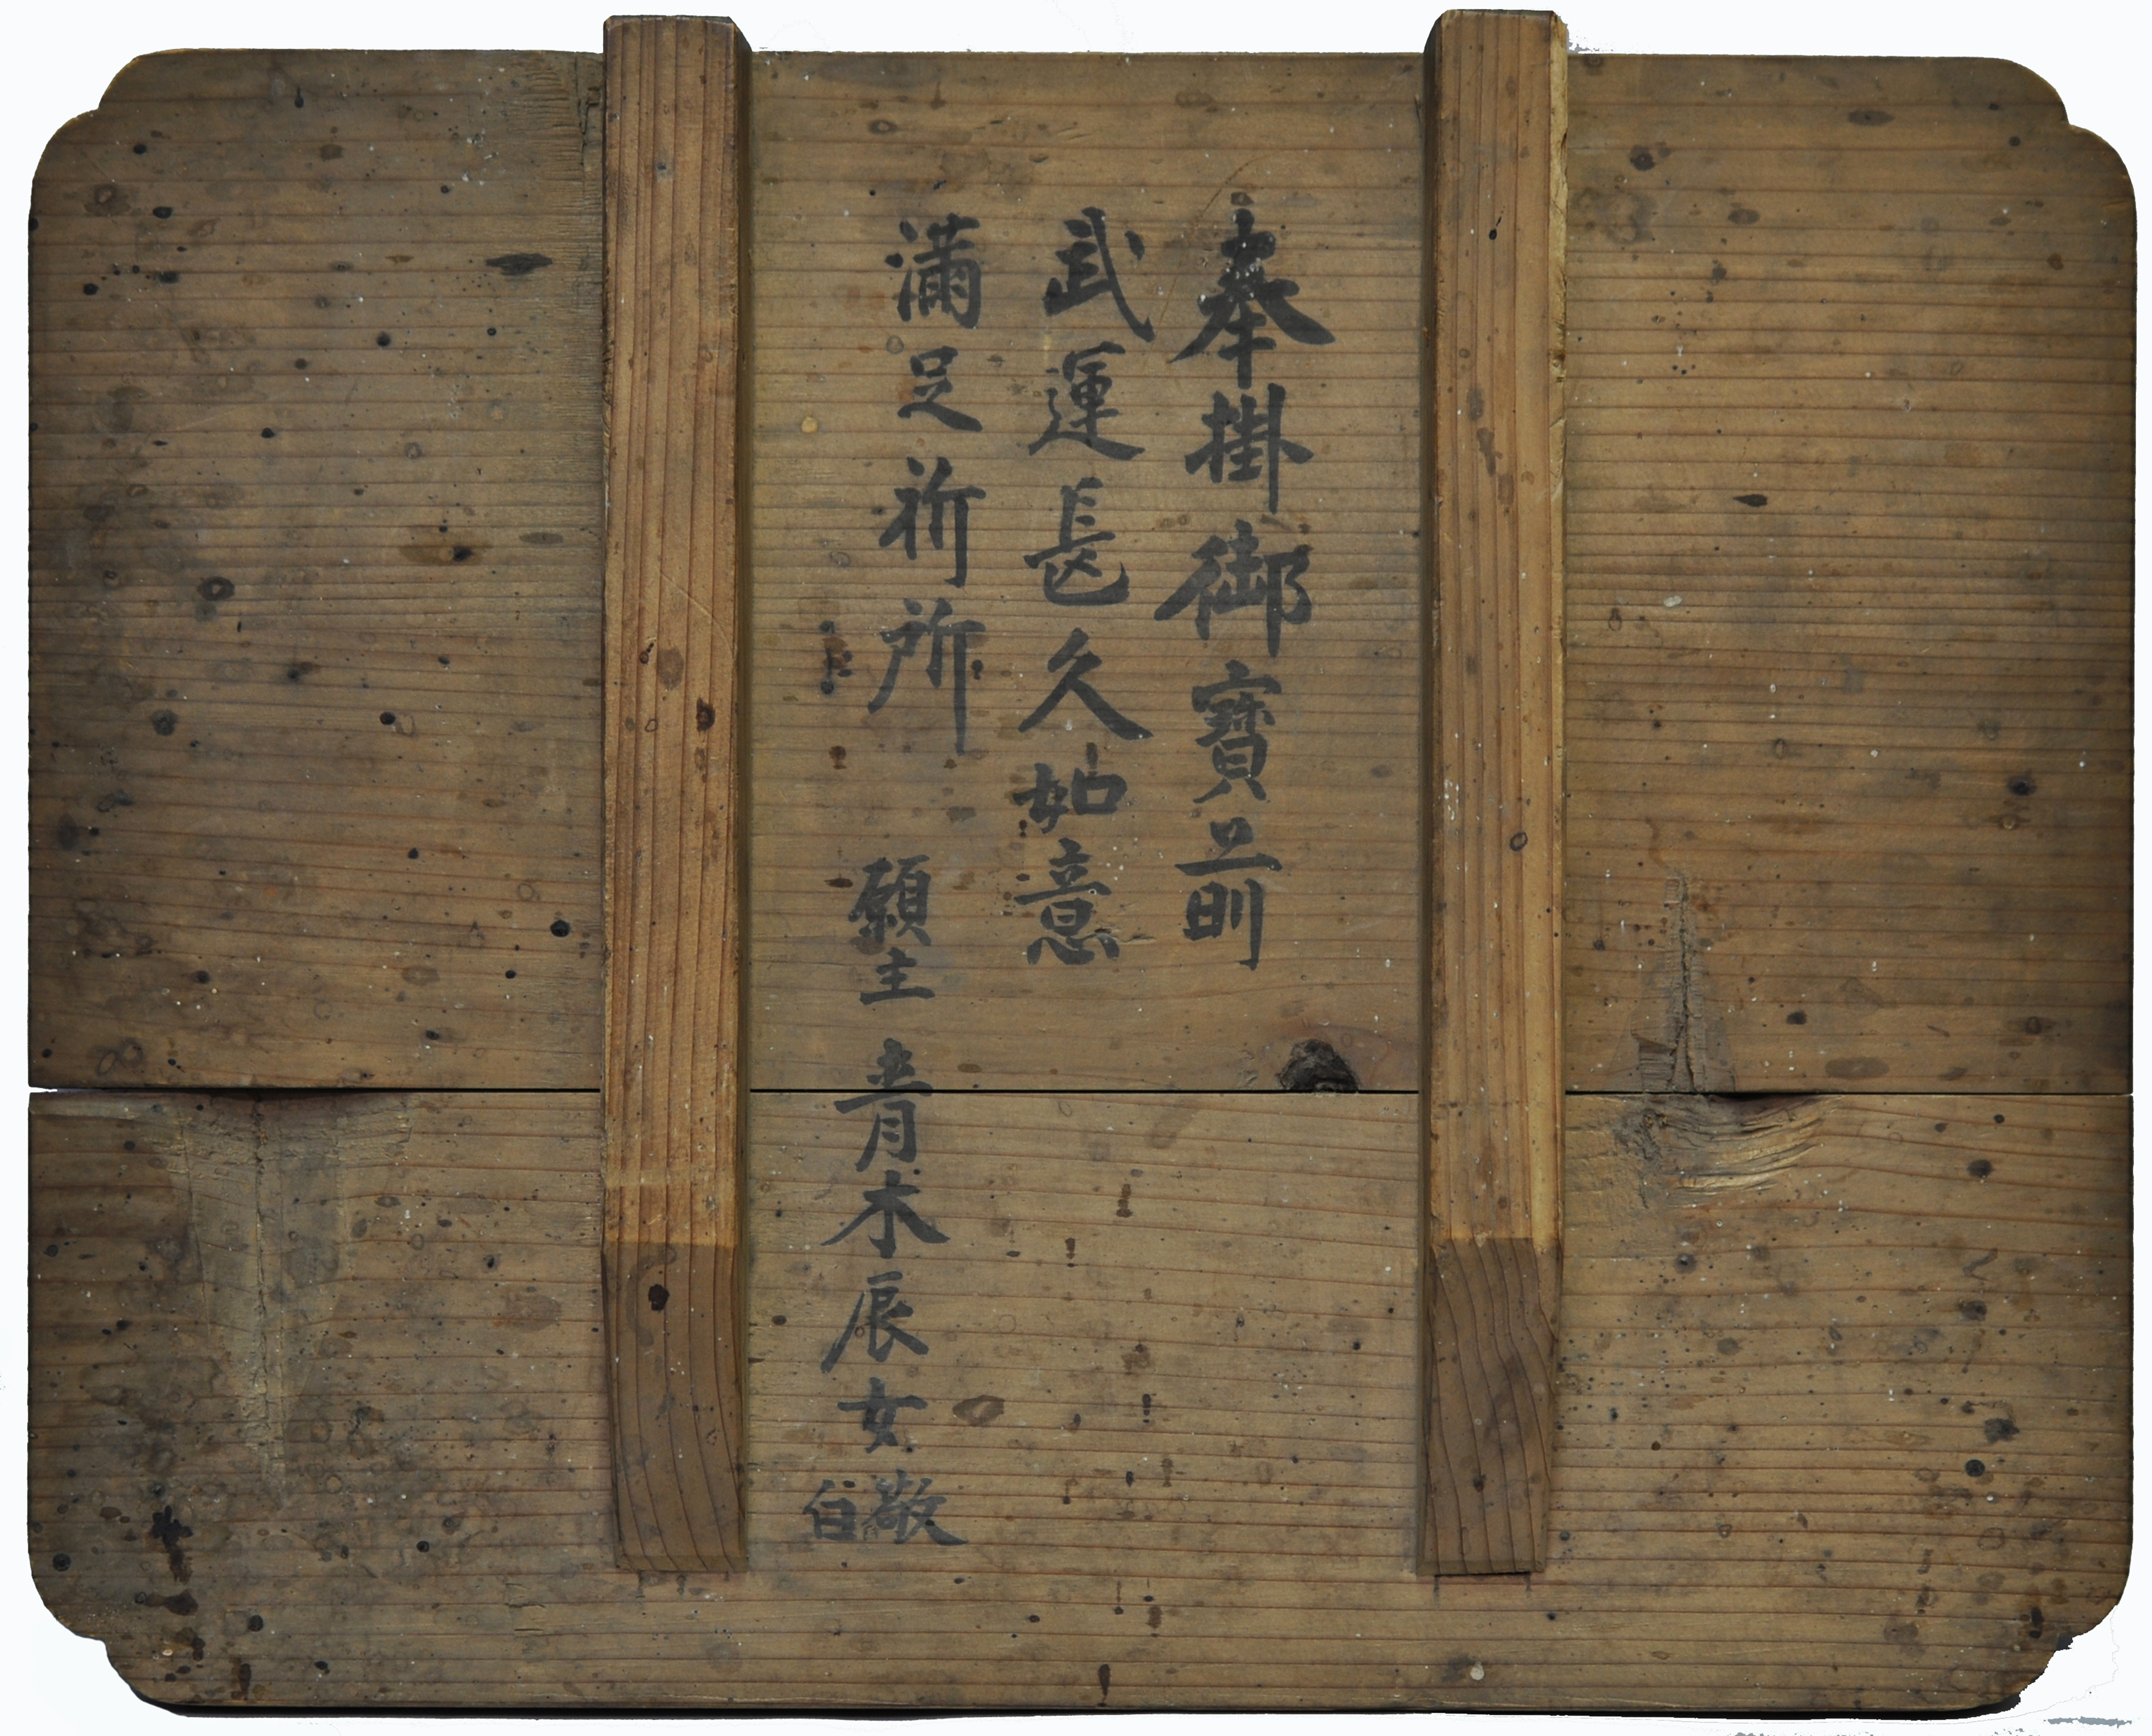 奉掛御寶前
武運長久如意
滿足祈所
願主 青木辰女敬白